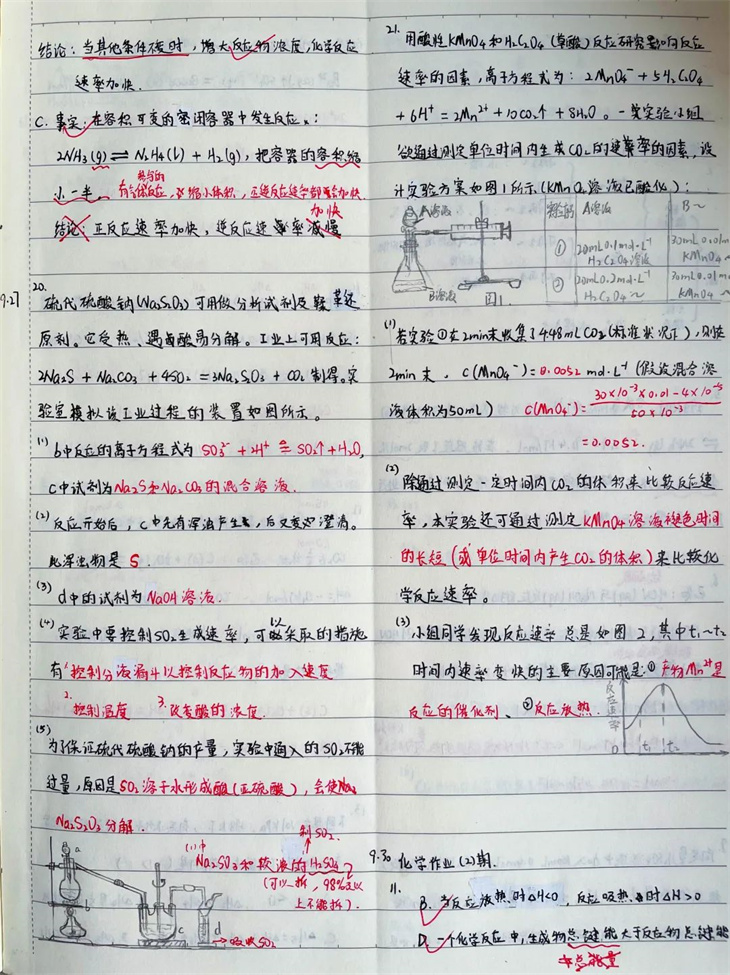 结论：当其他条件不变时，增大反应物浓度，化学反应
速率加快．
C. 事实：在容积可变的密闭容器中发生反应：
2NH₃(g) ⇌ N₂H₄(l) + H₂(g)，把容器的容积缩
小一半．
参与的
有气体反应，缩小体积，正逆反应速率都会加快．
加快
结论：正反应速率加快，逆反应速率减慢
9.27
20.
硫代硫酸钠(Na₂S₂O₃)可用做分析试剂及鞣革还
原剂。它受热、遇酸易分解。工业上可用反应：
2Na₂S + Na₂CO₃ + 4SO₂ = 3Na₂S₂O₃ + CO₂ 制得。实
验室模拟该工业过程的装置如图所示。
(1) b中反应的离子方程式为 SO₃²⁻ + 2H⁺ = SO₂↑ + H₂O，
c中试剂为Na₂S和Na₂CO₃的混合溶液．
(2) 反应开始后，c中先有浑浊产生，后又变澄清。
此浑浊物是 S．
(3) d中的试剂为NaOH溶液．
(4) 实验中要控制SO₂生成速率，可以采取的措施
有 1.控制分液漏斗以控制反应物的加入速度
2.控制温度 3.改变酸的浓度．
(5)
为了保证硫代硫酸钠的产量，实验中通入的SO₂不能
过量，原因是SO₂溶于水形成酸(亚硫酸)，会使
Na₂S₂O₃分解．
制SO₂．
(1)中
Na₂SO₃和较浓的H₂SO₄
(可以拆，98%及以
上不能拆)．
a
b
c
d
→吸收SO₂
21. 用酸性KMnO₄和H₂C₂O₄(草酸)反应研究影响反应
速率的因素，离子方程式为：2MnO₄⁻ + 5H₂C₂O₄
+ 6H⁺ = 2Mn²⁺ + 10CO₂↑ + 8H₂O。一实验小组
欲通过测定单位时间内生成CO₂的速率的因素，设
计实验方案如图1所示(KMnO₄溶液已酸化)：
A溶液
B溶液
图1.
实验序号 A溶液 B～
① 20mL0.1mol·L⁻¹ H₂C₂O₄溶液 30mL0.01m KMnO₄～
② 20mL0.2mol·L⁻¹ H₂C₂O₄～ 30mL0.01m KMnO₄～
(1) 若实验①在2min末收集了4.48mL CO₂(标准状况下)，则在
2min末，c(MnO₄⁻) = 0.0052 mol·L⁻¹ (假设混合溶
液体积为50mL) c(MnO₄⁻) = 30×10⁻³×0.01-4×10⁻⁵ / 50×10⁻³
= 0.0052．
(2)
除通过测定一定时间内CO₂的体积来比较反应速
率，本实验还可通过测定KMnO₄溶液褪色时间
的长短(或单位时间内产生CO₂的体积)来比较化
学反应速率。
(3) 小组同学发现反应速率总是如图2，其中t₁～t₂
时间内速率变快的主要原因可能是：①产物Mn²⁺是
反应的催化剂、②反应放热．
反应速率
0 t₁ t₂
9.30 化学作业(2)期
11.
B. 当反应放热时ΔH<0，反应吸热时ΔH>0
D. 一个化学反应中，生成物总键能大于反应物总键能
总能量